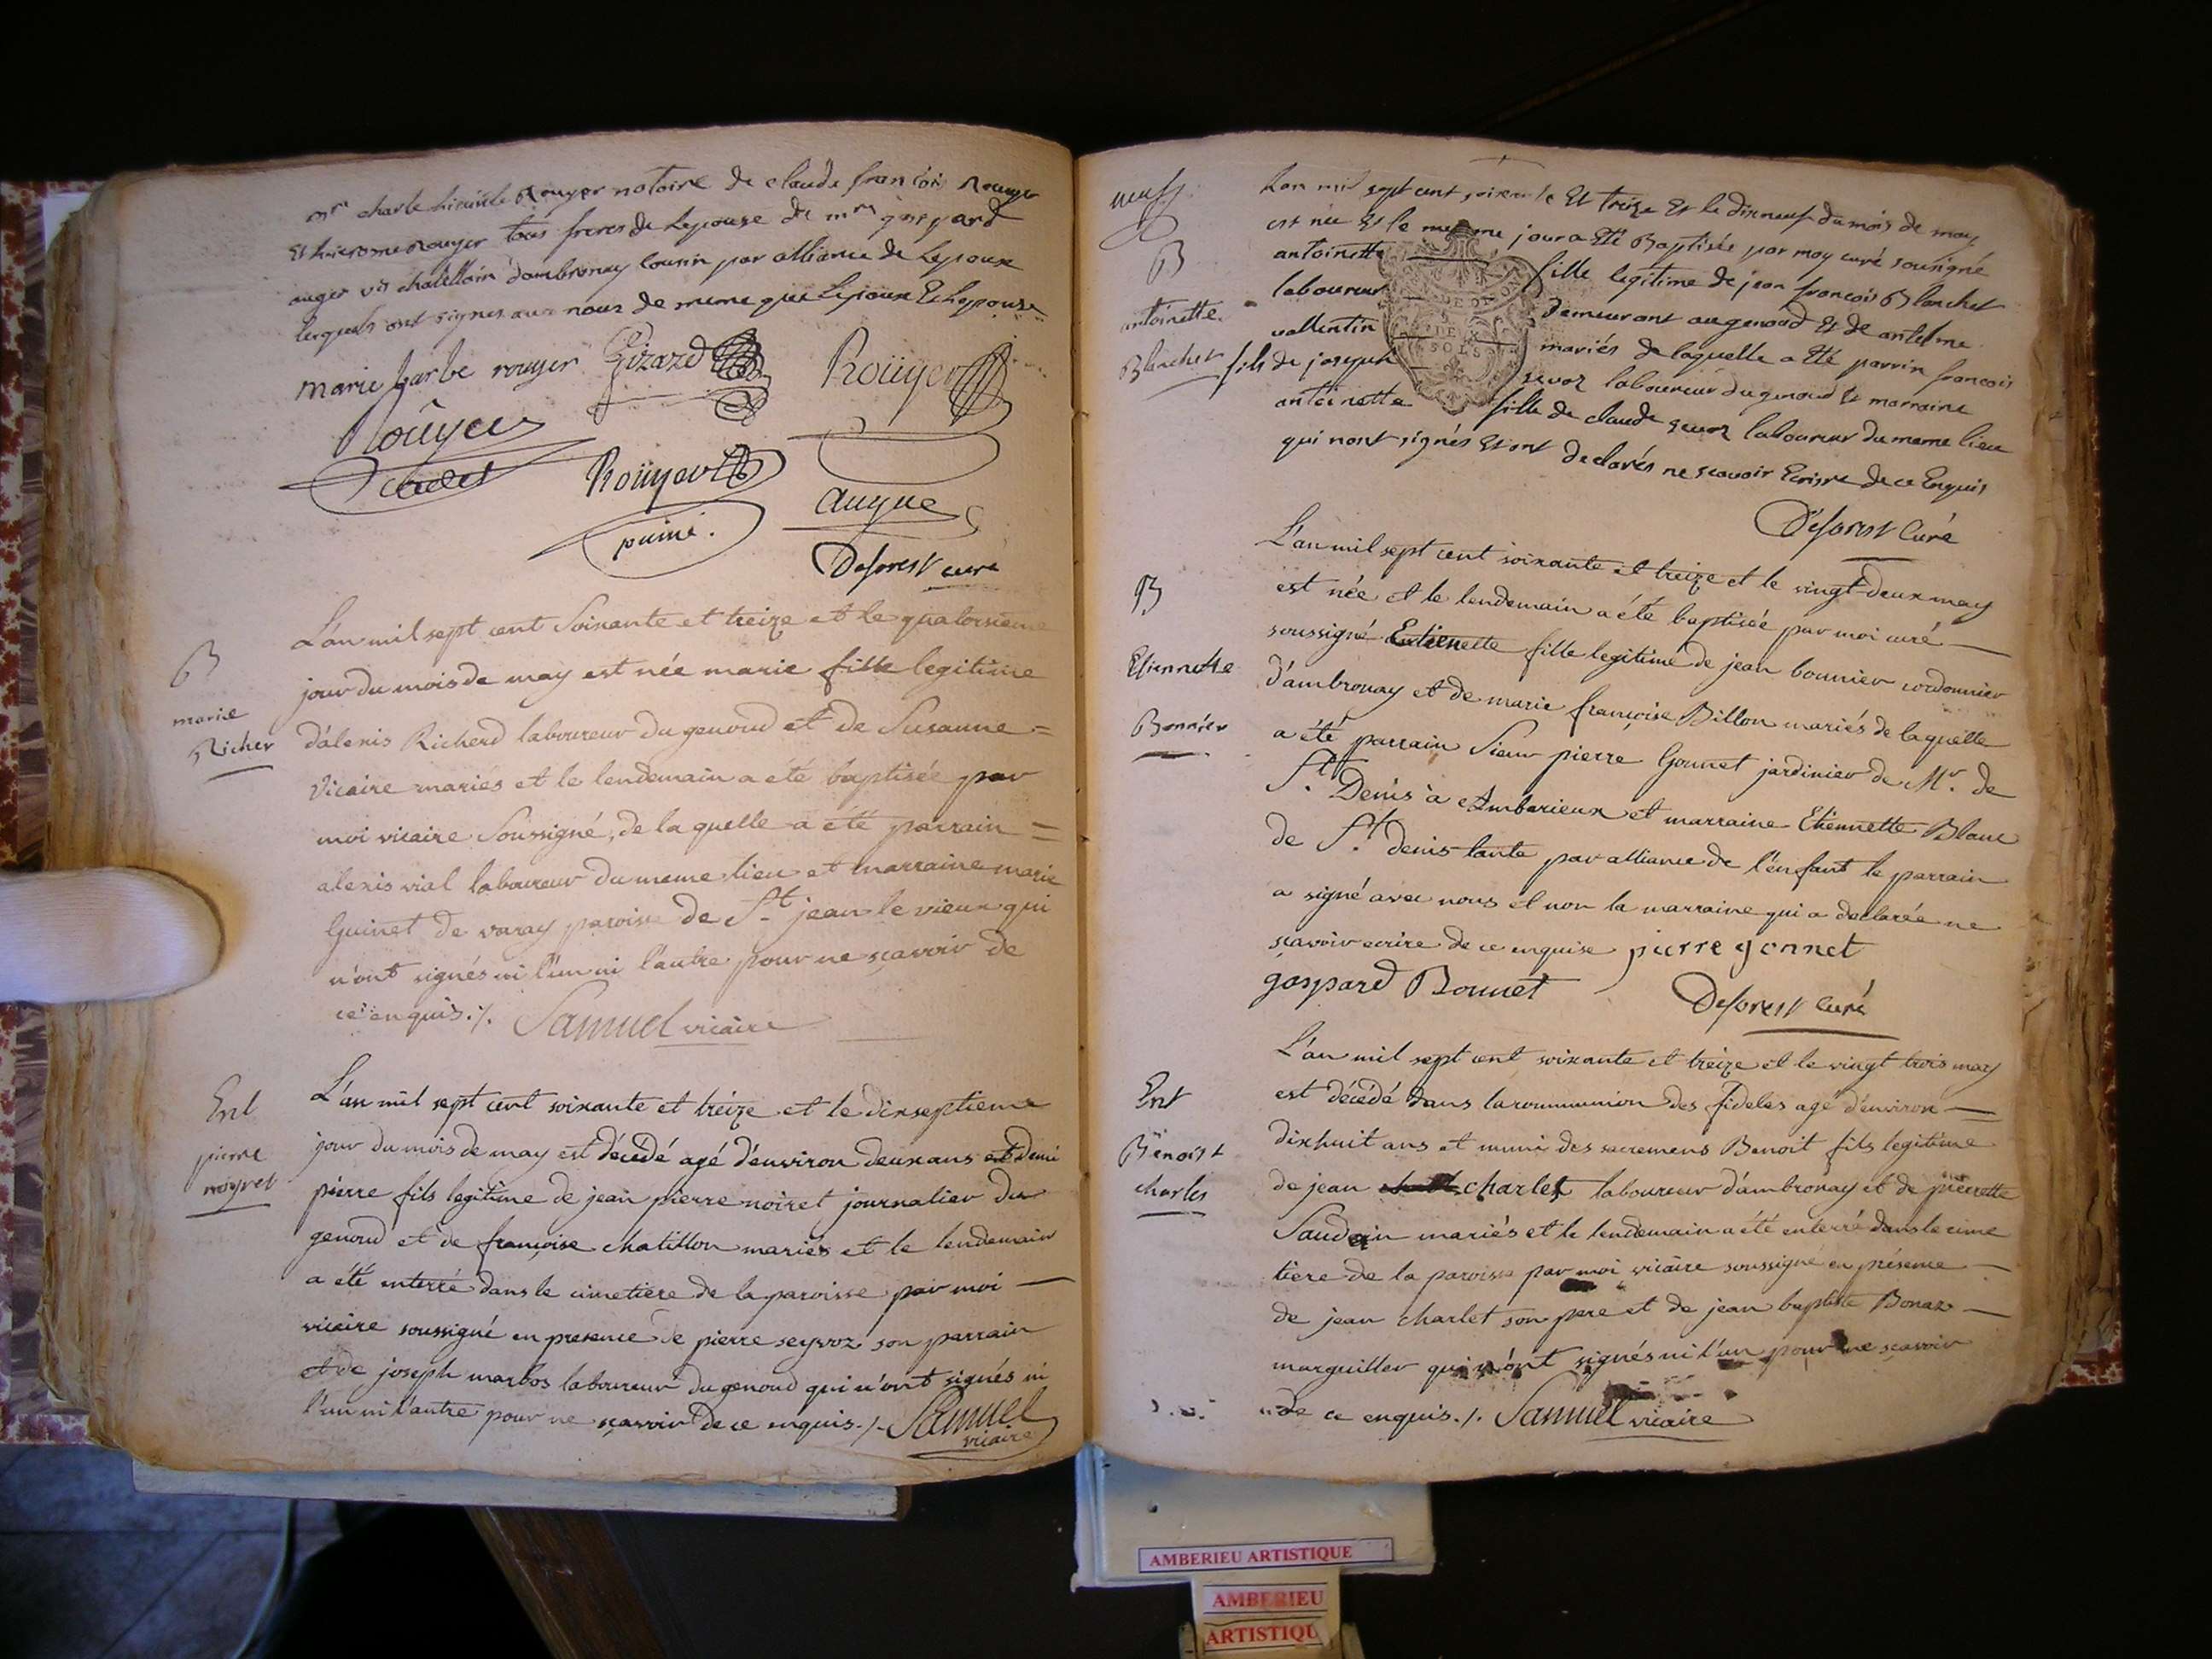 mre charle hiacinte Rouyer notaire de claude francois Rouyer
Et hierosme rouyer tous freres de Lepouse de mre gaspard
auger vis chatellain dambronay cousin par alliance de Lepoux
lesquels ont signes avec nous de meme que Lepoux Et Lepouse
marie barbe rouyer Gizard Roüyer
Roûyer
cadet Roüyer
puiné. auger
Deforest curé
B
marie
Richer
L'an mil sept cent Soixante et treize et le quatorsieme
jour du mois de may est née marie fille legitime
d'alexis Richerd laboureur du genoud et de Susanne =
Vicaire mariés et le lendemain a été baptisée par
moi vicaire Soussigné, de laquelle a été parrain =
alexis vial laboureur du meme lieu et marraine marie
Guinet de varay paroisse de St jean le vieux qui
n'ont signés ni l'un ni l'autre pour ne sçavoir de
ce enquis ./. Samuel vicaire
Ent
pierre
noyret
L'an mil sept cent soixante et treize et le dixseptieme
jour du mois de may est décédé agé d'environ deux ans et demi
pierre fils legitime de jean pierre noiret journalier du
genoud et de françoise chatillon mariés et le lendemain
a été enterré dans le cimetiere de la paroisse par moi —
vicaire soussigné en presence de pierre seyvoz son parrain
et de joseph marbos laboureur du genoud qui n'ont signés ni
l'un ni l'autre pour ne sçavoir de ce enquis ./. Samuel
vicaire
neuf
B
antoinette
Blanchet
Lan mil sept cent soixante Et treize Et le dixneuf du mois de may
est née Et le meme jour a Eté Baptisée par moy curé sousigné
antoinette fille legitime de jean francois Blanchet
laboureur demeurant au genoud Et de antelme
vallentin mariés de laquelle a Eté parrin francois
fils de joseph sevoz laboureur du genoud Et marraine
antoinette fille de claude sevoz laboureur du meme lieu
qui nont signés Et ont declarés ne scavoir Ecrire de ce Enquis
Deforest Curé
DE
SOLS
B
Etiennette
Bonnier
L'an mil sept cent soixante et treize et le vingt-deux may
est née et le lendemain a été baptisée par moi curé —
soussigné Etiennette fille legitime de jean bonnier cordonnier
d'ambronay et de marie françoise Billon mariés de laquelle
a été parrain Sieur pierre Gonnet jardinier de Mr. de
St. Denis à Ambarieux et marraine Etiennette Blanc
de St. denis tante par alliance de l'enfant le parrain
a signé avec nous et non la marraine qui a declarée ne
sçavoir ecrire de ce enquise pierre gonnet
gaspard Bonnet Deforest Curé
Ent
Benoist
charles
L'an mil sept cent soixante et treize et le vingt trois may
est décédé dans la communion des fideles agé d'environ —
dixhuit ans et muni des sacremens Benoit fils legitime
de jean charlet laboureur d'ambronay et de pierrette
Saudin mariés et le lendemain a été enterré dans le cime
tiere de la paroisse par moi vicaire soussigné en présence —
de jean charlet son pere et de jean baptiste Bonaz —
marguiller qui n'ont signés ni l'un pour ne sçavoir
de ce enquis ./. Samuel vicaire
AMBERIEU ARTISTIQUE
AMBERIEU
ARTISTIQU